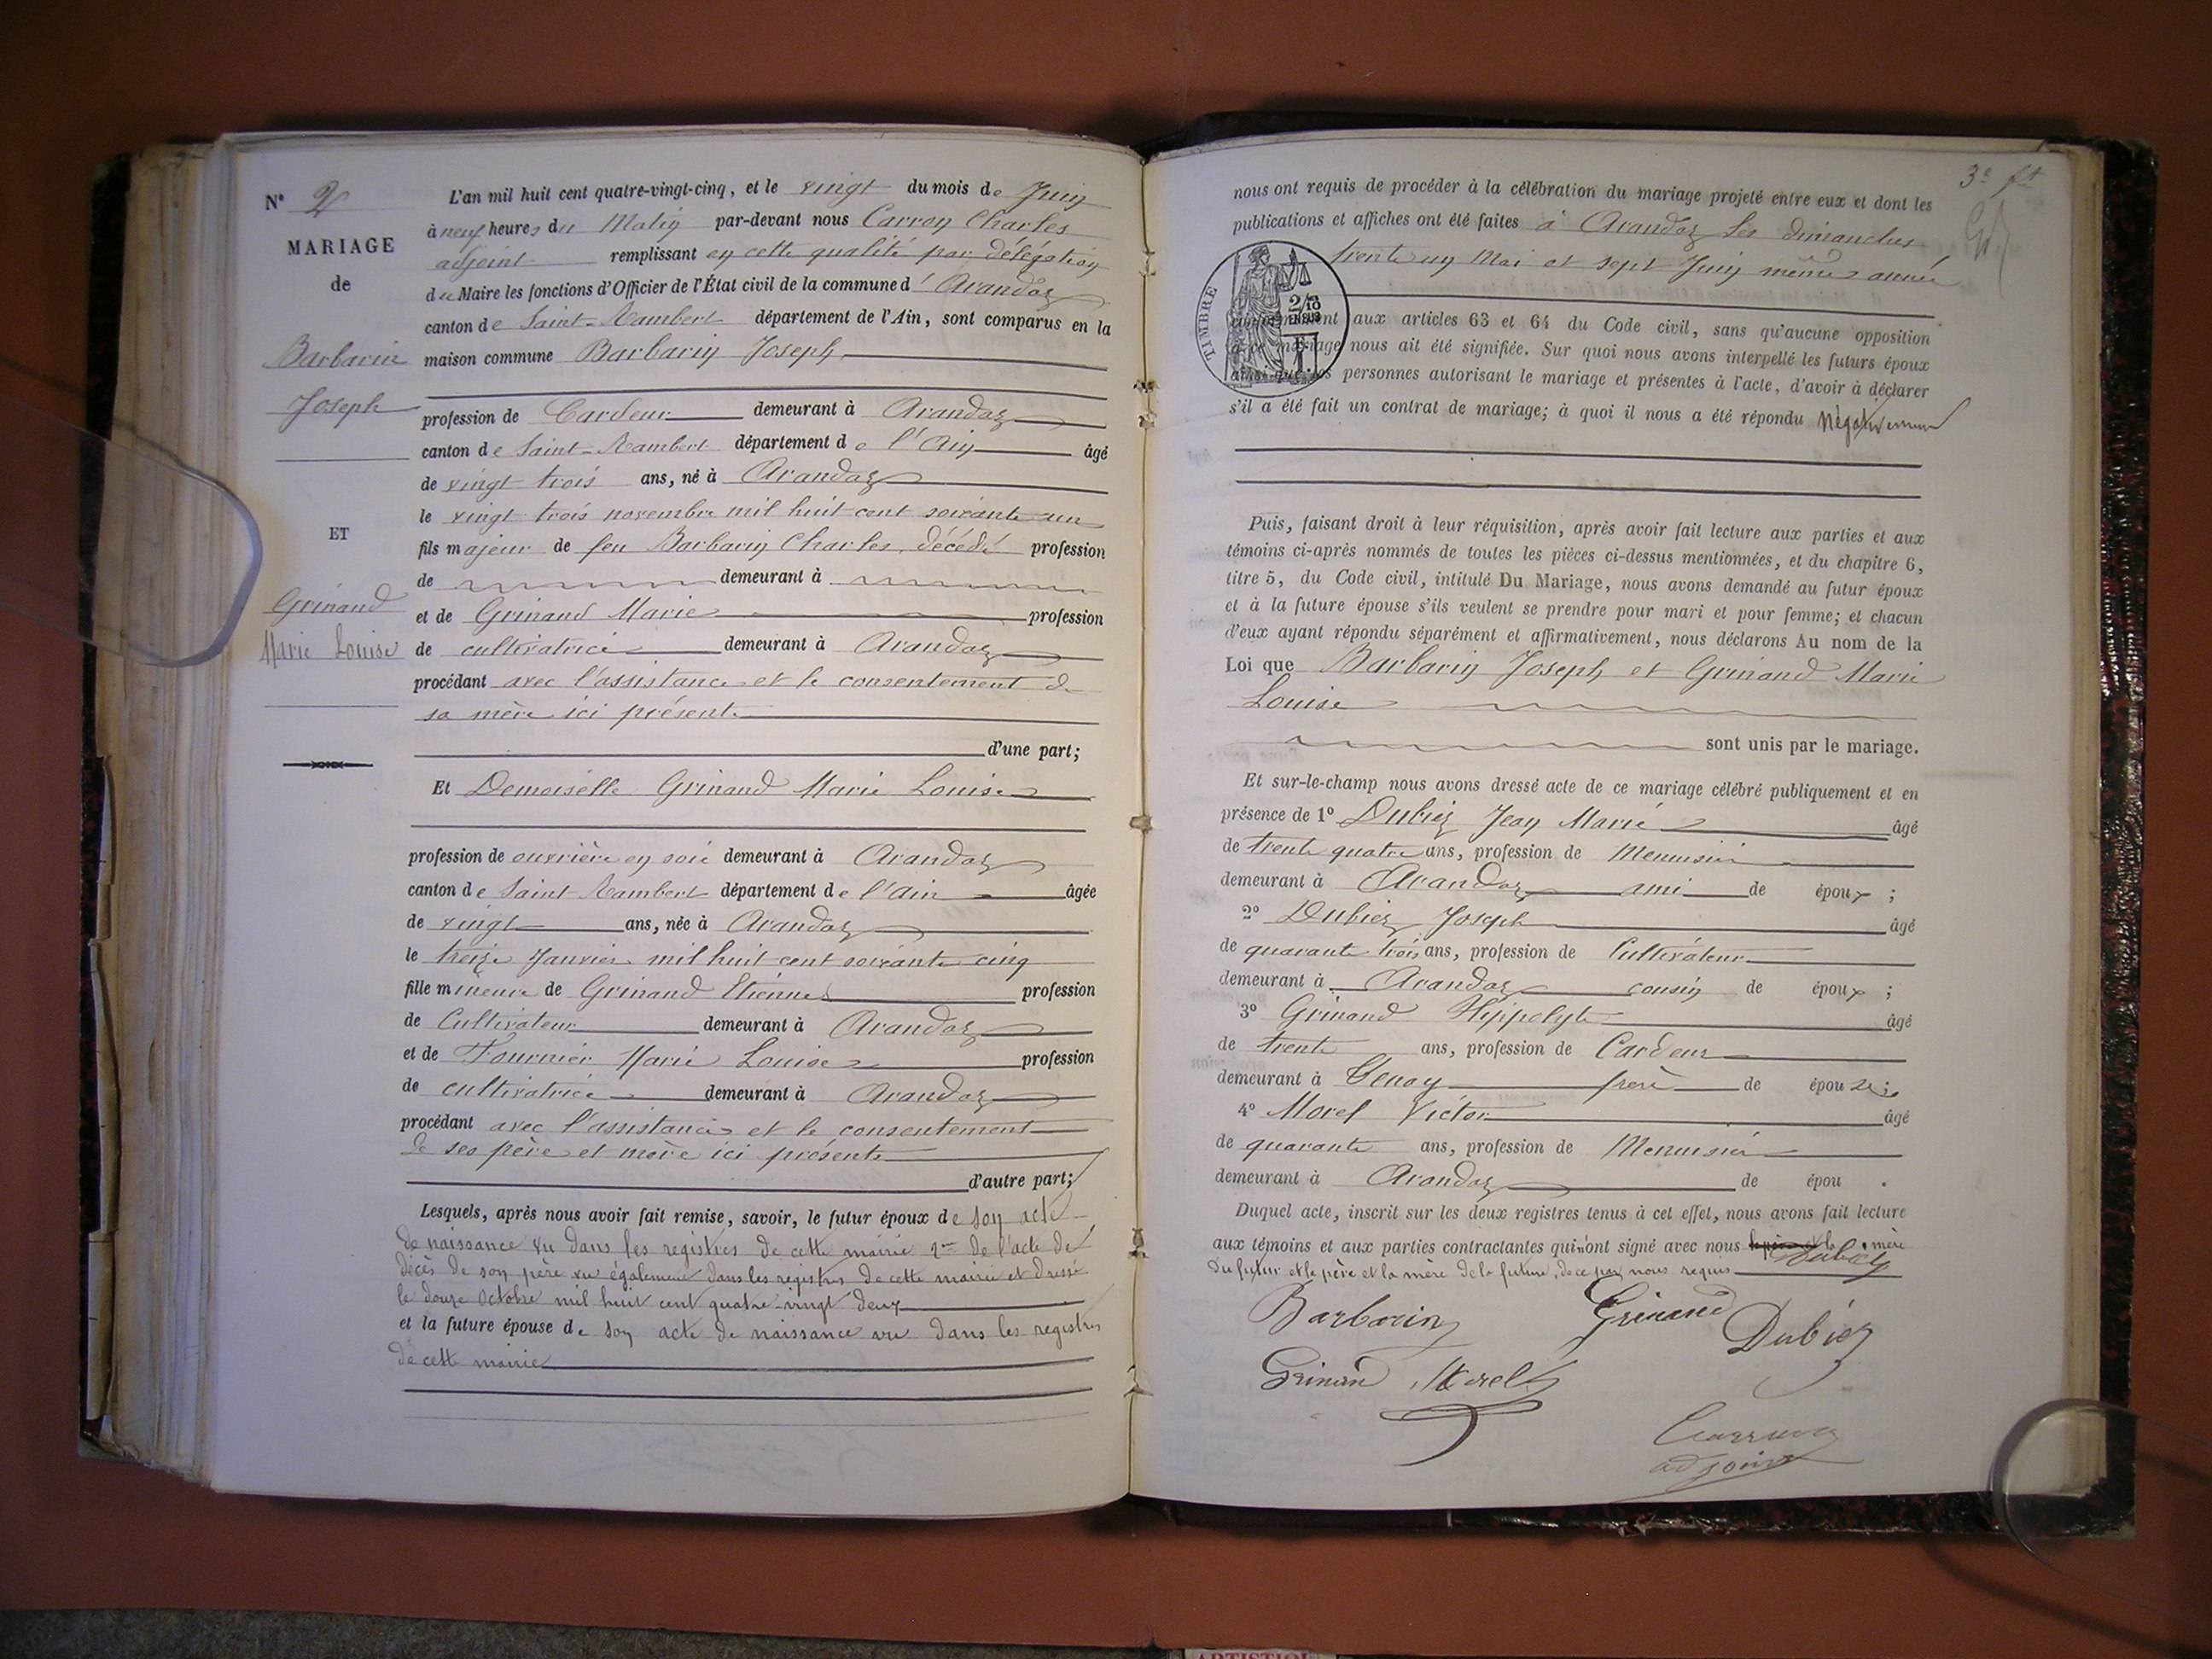 N° 2
MARIAGE
de
Barbarin
Joseph
ET
Grinand
Marie Louise
L'an mil huit cent quatre-vingt-cinq, et le vingt du mois de Juin
à neuf heures du Matin par-devant nous Carron Charles
adjoint remplissant en cette qualité par délégation
du Maire les fonctions d'Officier de l'État civil de la commune d'Arandas
canton de Saint-Rambert département de l'Ain, sont comparus en la
maison commune Barbarin Joseph
profession de Cardeur demeurant à Arandas
canton de Saint-Rambert département de l'Ain âgé
de vingt trois ans, né à Arandas
le vingt trois novembre mil huit cent soixante un
fils majeur de feu Barbarin Charles, décédé profession
de demeurant à
et de Grinand Marie profession
de cultivatrice demeurant à Arandas
procédant avec l'assistance et le consentement de
sa mère ici présente
d'une part;
Et Demoiselle Grinand Marie Louise
profession de ouvrière en soie demeurant à Arandas
canton de Saint-Rambert département de l'Ain âgée
de vingt ans, née à Arandas
le treize Janvier mil huit cent soixante cinq
fille mineure de Grinand Etienne profession
de Cultivateur demeurant à Arandas
et de Fournier Marie Louise profession
de cultivatrice demeurant à Arandas
procédant avec l'assistance et le consentement
de ses père et mère ici présents
d'autre part;
Lesquels, après nous avoir fait remise, savoir, le futur époux de son acte
de naissance vu dans les registres de cette mairie 2me de l'acte de
décès de son père vu également dans les registres de cette mairie et dressé
le douze Octobre mil huit cent quatre-vingt deux
et la future épouse de son acte de naissance vu dans les registres
de cette mairie
3e ft
nous ont requis de procéder à la célébration du mariage projeté entre eux et dont les
publications et affiches ont été faites à Arandas les dimanches
trente un Mai et sept Juin même année
TIMBRE
conformément aux articles 63 et 64 du Code civil, sans qu'aucune opposition
à ce mariage nous ait été signifiée. Sur quoi nous avons interpellé les futurs époux
ainsi que les personnes autorisant le mariage et présentes à l'acte, d'avoir à déclarer
s'il a été fait un contrat de mariage; à quoi il nous a été répondu négativement
Puis, faisant droit à leur réquisition, après avoir fait lecture aux parties et aux
témoins ci-après nommés de toutes les pièces ci-dessus mentionnées, et du chapitre 6,
titre 5, du Code civil, intitulé Du Mariage, nous avons demandé au futur époux
et à la future épouse s'ils veulent se prendre pour mari et pour femme; et chacun
d'eux ayant répondu séparément et affirmativement, nous déclarons Au nom de la
Loi que Barbarin Joseph et Grinand Marie
Louise
sont unis par le mariage.
Et sur-le-champ nous avons dressé acte de ce mariage célébré publiquement et en
présence de 1° Dubiez Jean Marie âgé
de trente quatre ans, profession de Menuisier
demeurant à Arandas ami de époux ;
2° Dubiez Joseph âgé
de quarante trois ans, profession de Cultivateur
demeurant à Arandas cousin de époux ;
3° Grinand Hippolyte âgé
de trente ans, profession de Cardeur
demeurant à Tenay frère de épouse ;
4° Morel Victor âgé
de quarante ans, profession de Menuisier
demeurant à Arandas de épou .
Duquel acte, inscrit sur les deux registres tenus à cet effet, nous avons fait lecture
aux témoins et aux parties contractantes qui n'ont signé avec nous la mère
du futur et le père et la mère de la future, de ce par nous requis
Dubiez
Barbarin Grinand Dubiez
Grinand Morel
Carron
adjoint